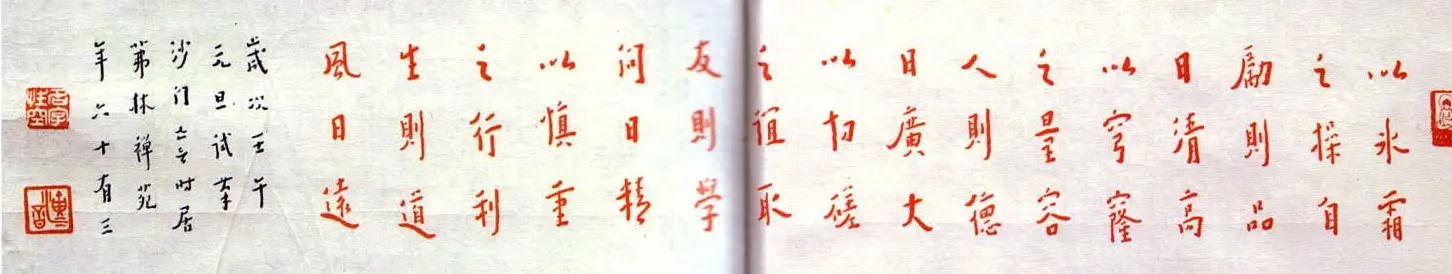 以冰霜
之操自
勵則品
日清高
以穹窿
之量容
人則德
日廣大
以切磋
之誼取
友則學
問日精
以慎重
之行利
生則道
風日遠
歲次壬午
元旦試筆
沙门亡言时居
茀林禪苑
年六十有三
名字性空
演音